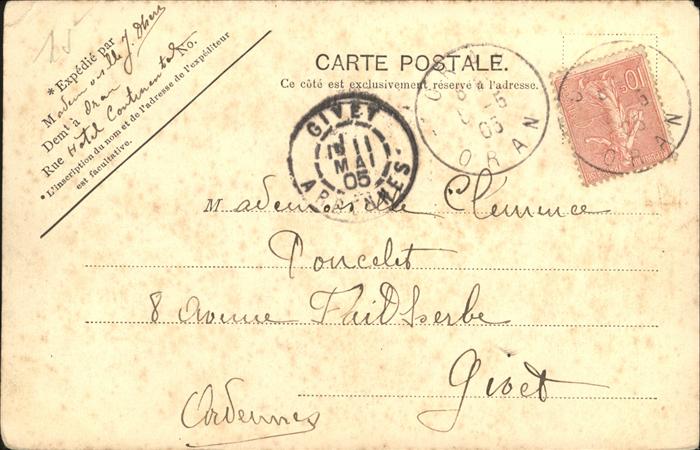 15
* Expédié par
Mademoiselle J.
Demt à Oran
Rue Hotel Continental No.
* L'inscription du nom et de l'adresse de l'expéditeur
est facultative.
CARTE POSTALE.
Ce côté est exclusivement réservé à l'adresse.
GIVET
11
MAI
05
ARDENNES
05
ORAN
10
ORAN
Mademoiselle Clémence
Poncelet
8 Avenue Faidherbe
Givet
Ardennes